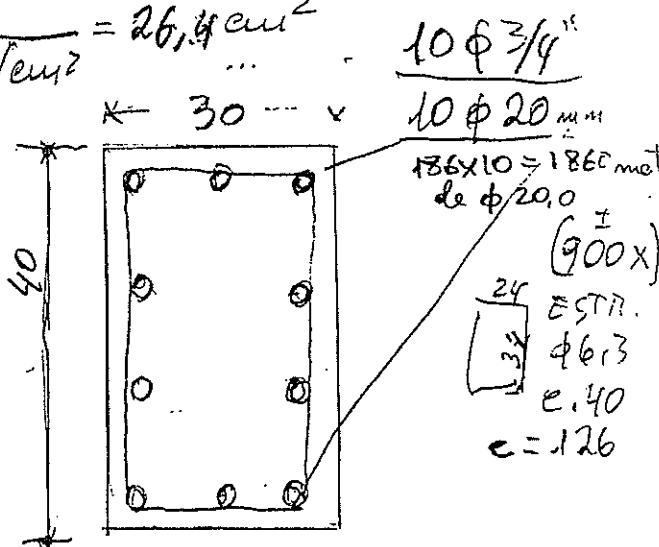 = 26,4 cm²
/cm²
10 ϕ 3/4"
30
10 ϕ 20 mm
186x10 = 1860 met
de ϕ 20,0
±
(900x)
40
24
34
ESTR.
ϕ6,3
c.40
c=126